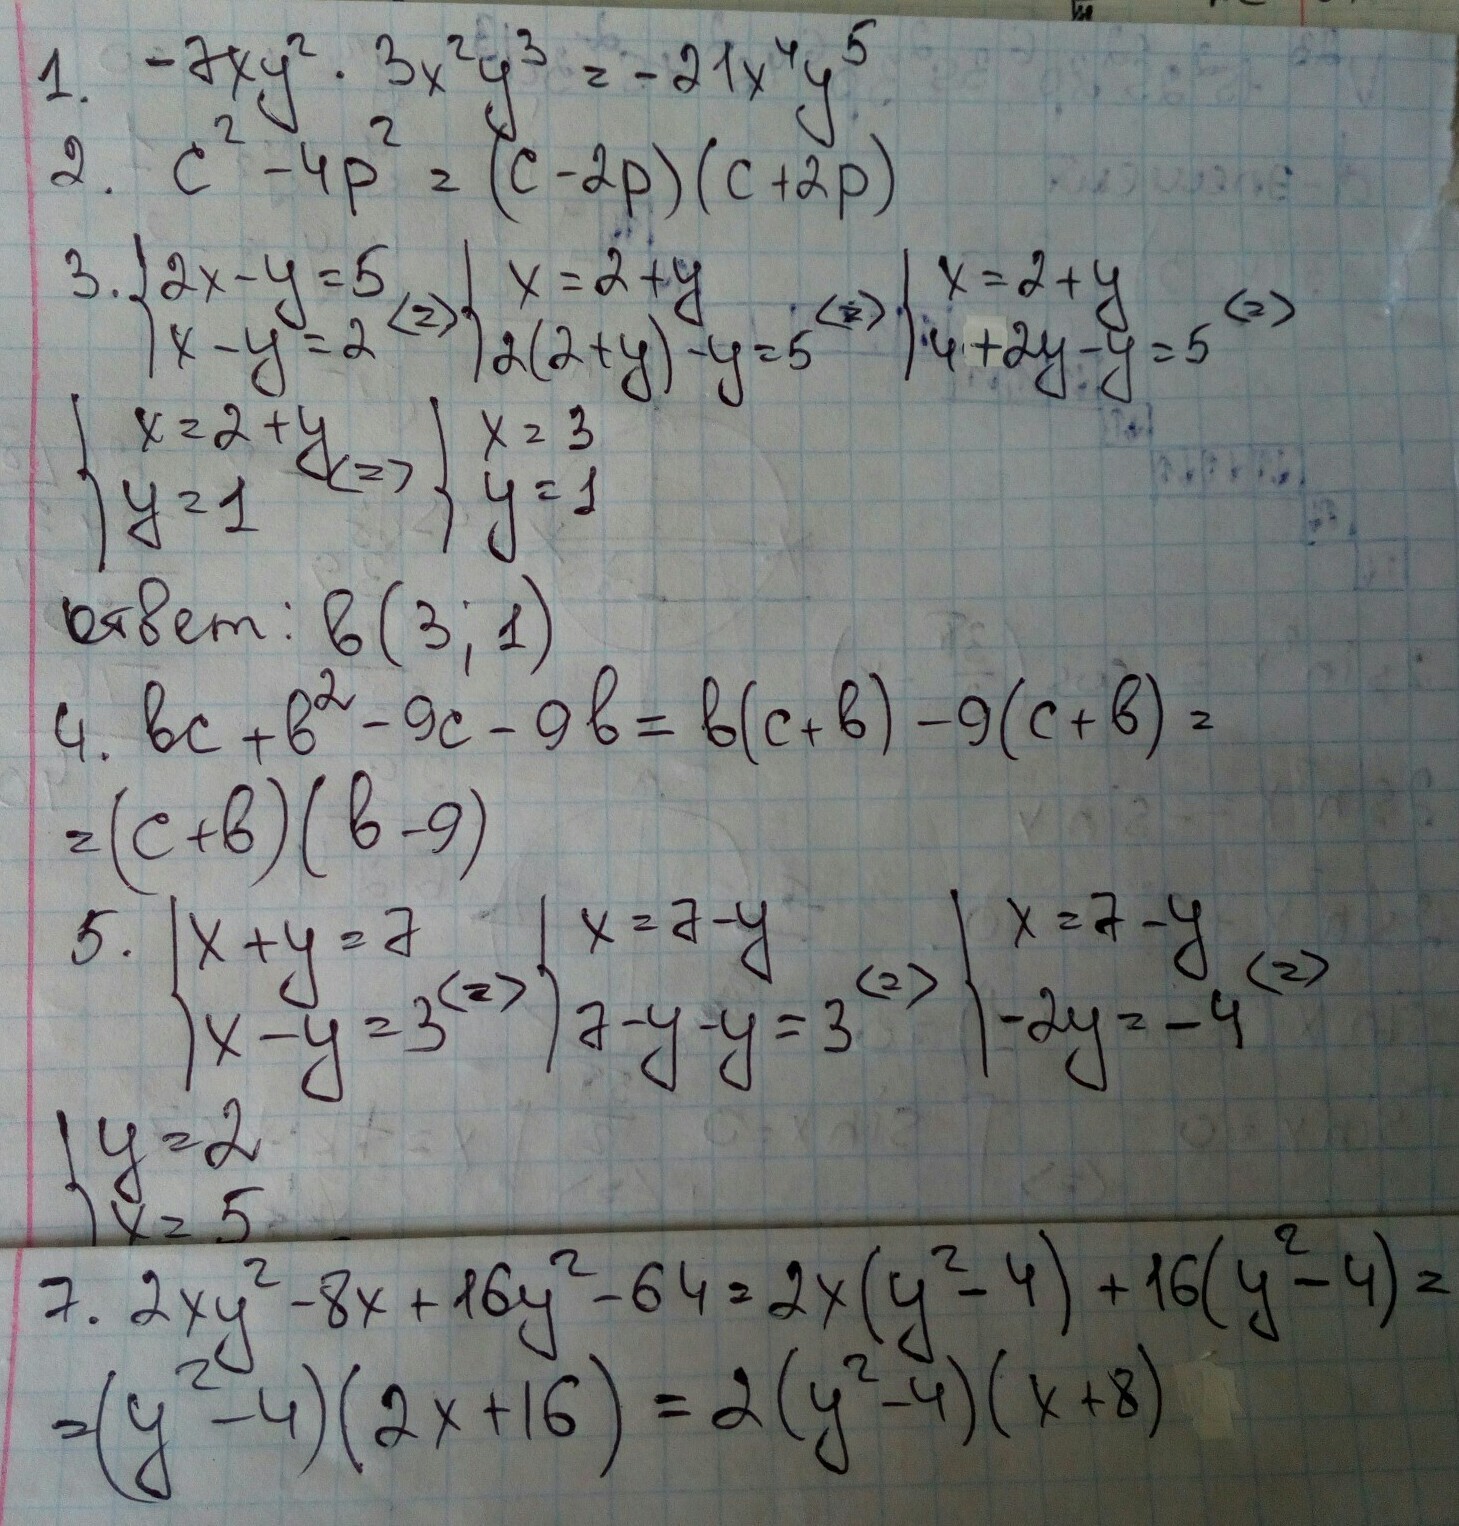 1. -7xy² · 3x²y³ = -21x⁴y⁵
2. c² - 4p² = (c - 2p)(c + 2p)
3. { 2x - y = 5 <=> { x = 2 + y <=> { x = 2 + y <=>
x - y = 2 2(2 + y) - y = 5 4 + 2y - y = 5
{ x = 2 + y <=> { x = 3
y = 1 y = 1
ответ: в(3; 1)
4. вc + в² - 9c - 9в = в(c + в) - 9(c + в) =
= (c + в)(в - 9)
5. { x + y = 7 <=> { x = 7 - y <=> { x = 7 - y <=>
x - y = 3 7 - y - y = 3 -2y = -4
{ y = 2
x = 5
7. 2xy² - 8x + 16y² - 64 = 2x(y² - 4) + 16(y² - 4) =
= (y² - 4)(2x + 16) = 2(y² - 4)(x + 8)